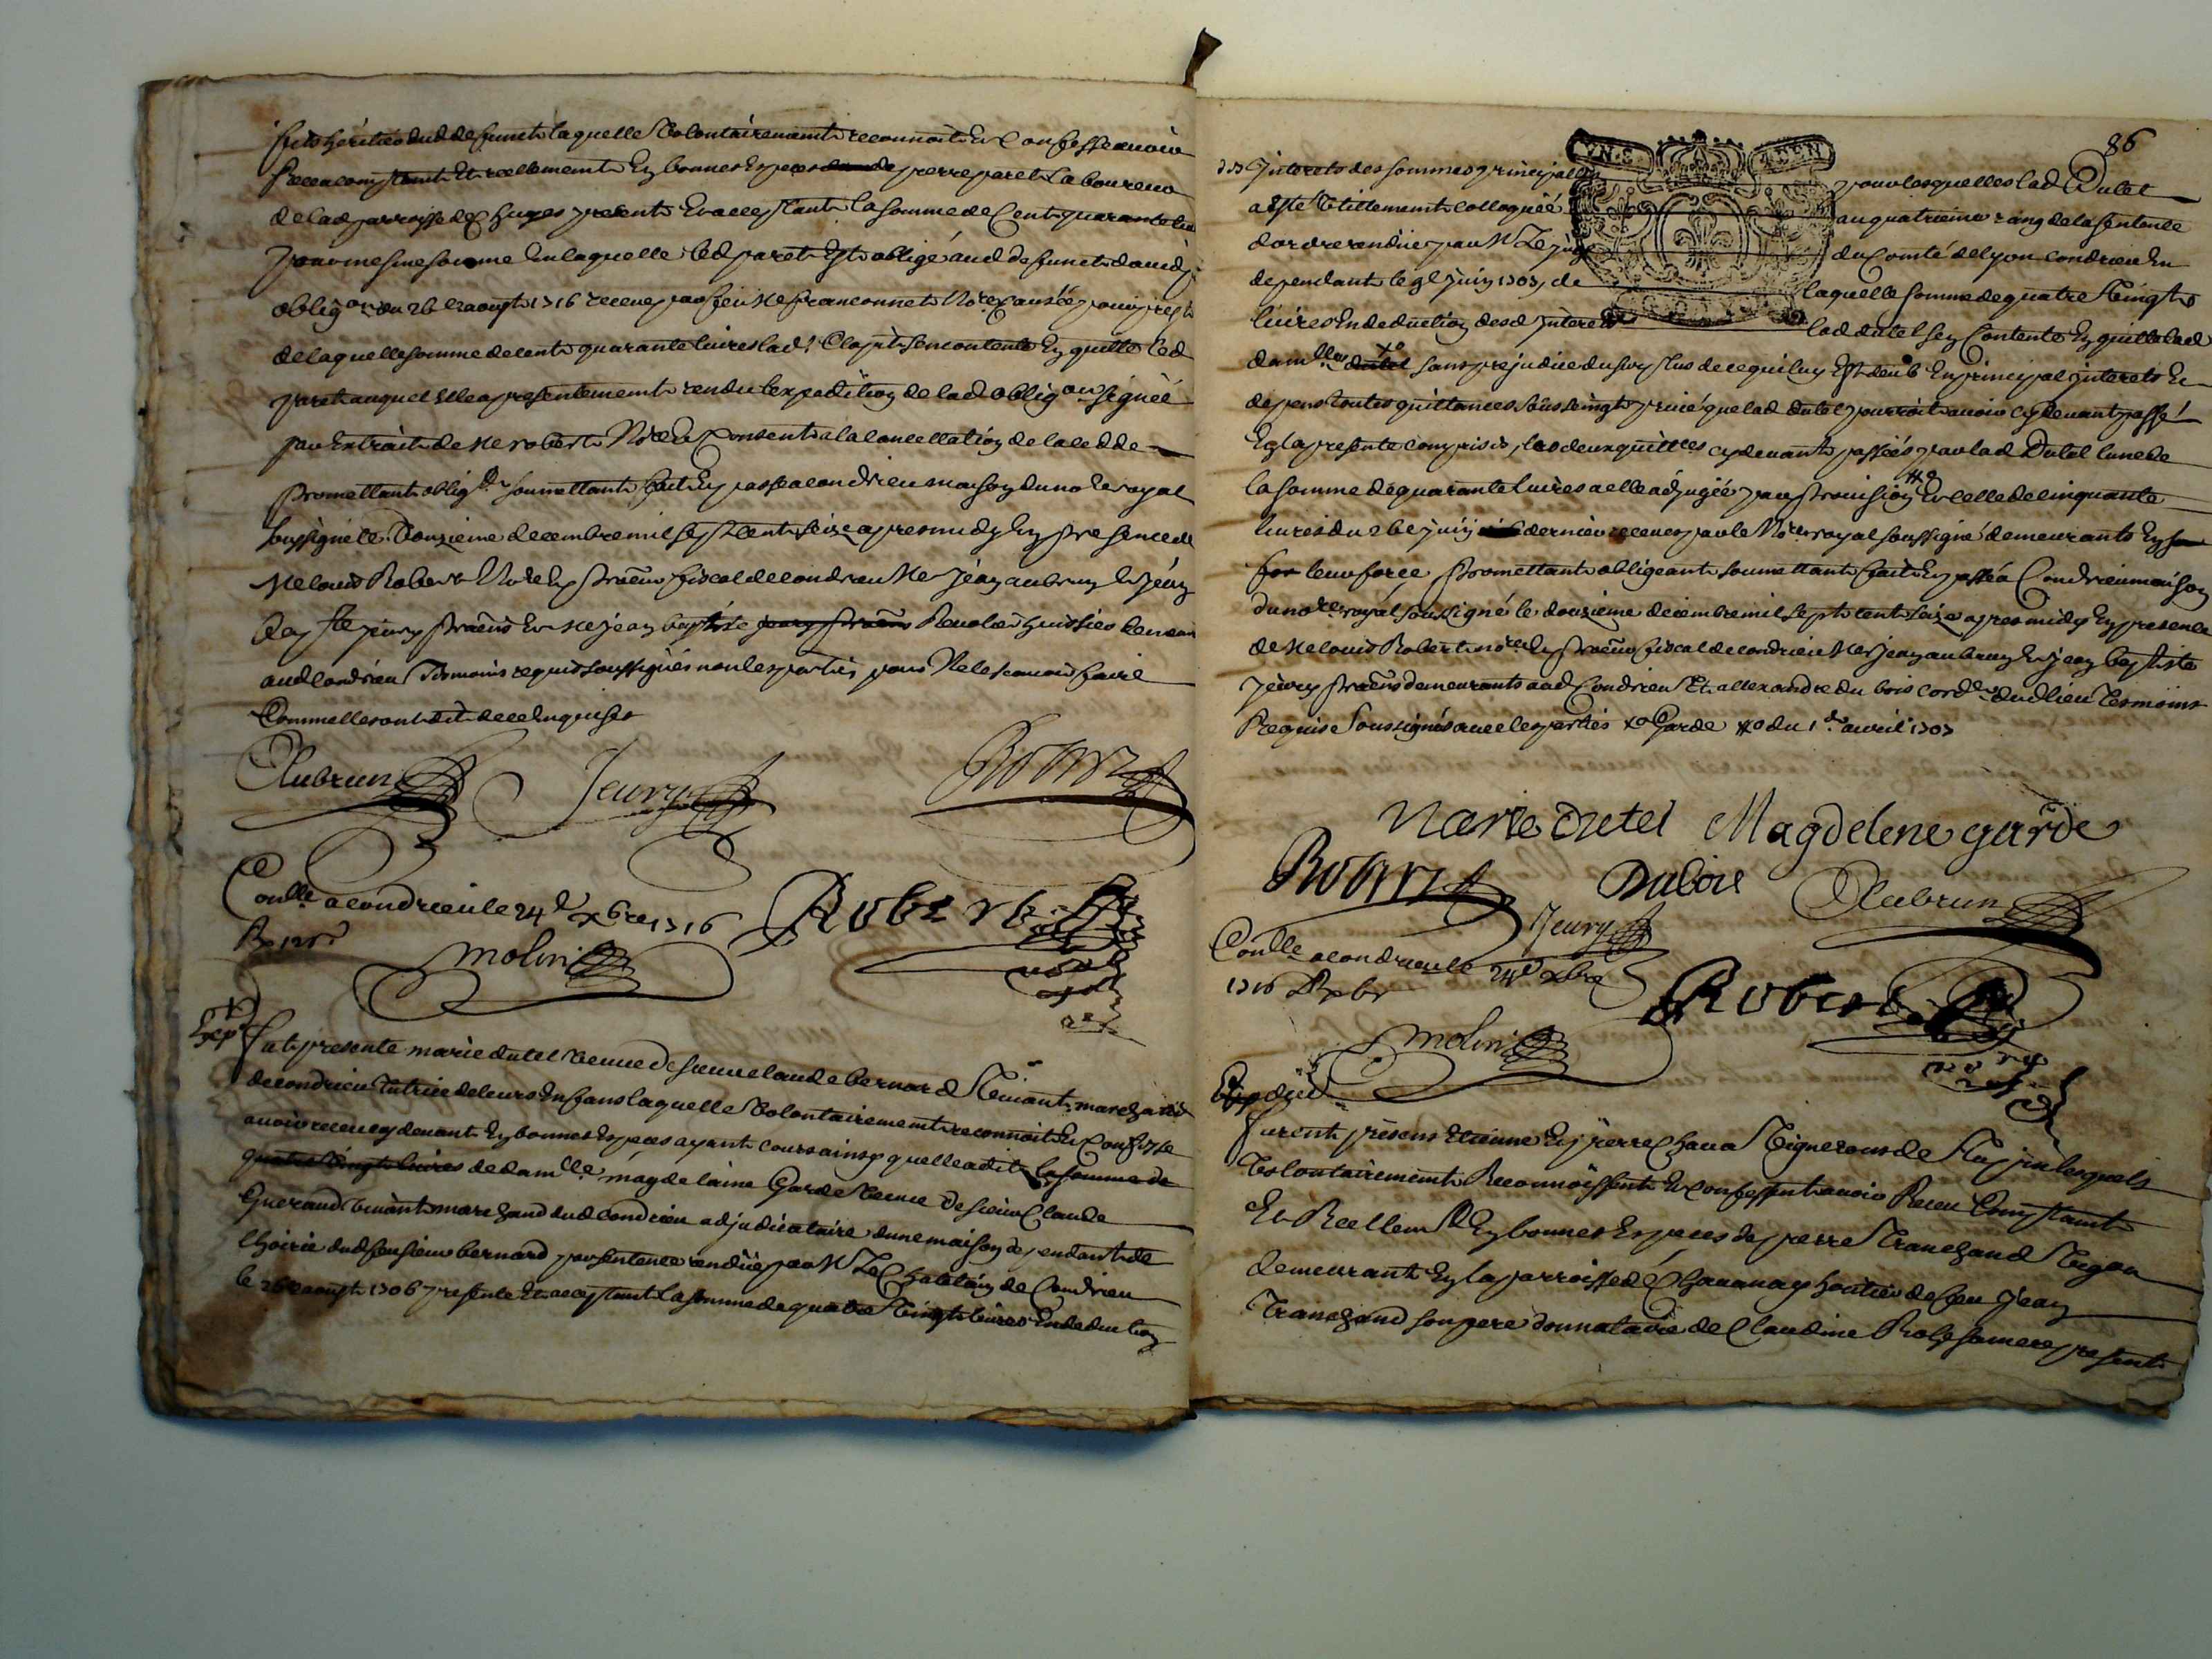 fils héritier dud defunct laquelle volontairement reconnoit et confesse avoir
Receu comptant et reellement en bonnes especes de pierre paret laboureur
de lad parroisse de presente et acceptante la somme de cent quarante
pour mesme somme en laquelle led paret est obligé aud defunct
oblig.on du 26e aougst 1716 receue par feu Me franconnet No.re
de laquelle somme de cent quarante livres lad. se contente en quitte led
paret auquel elle a presentement rendu lexpedition de lad oblig.on signée
par extrait de Me robert No.re et consent a la cancellation de la cedde
promettant oblig.t soumettant fait et passé a condrieu maison du no.re royal
soussigné le douzieme decembre mil sept cent seize apres midy en presence de
Me louis Robert No.re et procur fiscal de condrieu Me jean aubrun et jean
bap.te jeury et Me jean baptiste huissier demeur
aud condrieu Tesmoins requis soussignés non les parties pour ne le scavoir faire
Comme elles ont dit de ce enquises
Aubrun Jeury Robert
Con.lle a condrieu le 24.e xbre 1716 Robert
molin
Exp.
fut presente marie dutel veuve de sieur claude bernard vivant marchand
de condrieu tutrice de leurs enfans laquelle volontairement reconnoit et confesse
avoir receu cy devant en bonnes especes ayant cours ainsy quelle a dit la somme de
quatre vingt livres de dam.lle magdelaine Garde veuve de sieur Claude
Gueraud vivant marchand dud condrieu adjudicataire dune maison dependant de
lhoirie dud feu sieur bernard par sentence rendüe par Mr Le Chatelain de Condrieu
le 26e aougst 1706 presente et acceptant la somme de quatre vingt livres en deduction
86
des Interets des sommes principalles pour lesquelles lad Dutel
a esté utillement colloquée au quatrieme rang de la sentence
dordre rendüe par Mr Le juge du Comté de lyon condrieu en
dependant le juin 1707, de laquelle somme de quatre vingt
livres en deduction desd interets lad dutel sen contente en quitte lad
dam.lle dutel xo sans prejudice du surplus de ce qui luy est deub en principal interets et
depens toutes quittances sous seingt privé que lad dutel pourroit avoir cy devant passé
en la presente comprises, les deux quitt.ces cy devant passées par lad Dutel lune de
la somme de quarante livres a elle adjugée par provision #o et celle de cinquante
livres du 26e juin dernier receue par le No.re royal soussigné demeurants en
for leur force promettant obligeant soumettant fait et passé a Condrieu maison
du no.re royal soussigné le douzieme decembre mil sept cent seize apres midy en presence
de Me louis Robert no.re et procur fiscal de condrieu Me jean aubrun et jean baptiste
jeury demeurants aud Condrieu et allexandre du bois cord.r dud lieu Tesmoins
Requis Soussignés avec les parties xo Garde #o du 1.er avril 1707
Marie dutel Magdelene garde
Robert Dubois Aubrun
Jeury
Con.lle a condrieu le 24.e xbre
1716 Robert
molin
Expedié
furent presens Etienne et pierre Chava vignerons de lesquels
volontairement Reconnoissent et confessent avoir Receu Comptant
et Reellem.t en bonnes especes de pierre Tranchand
demeurant en la parroisse de Chavanay heritier de feu jean
Tranchand son pere donnataire de Claudine sa mere present